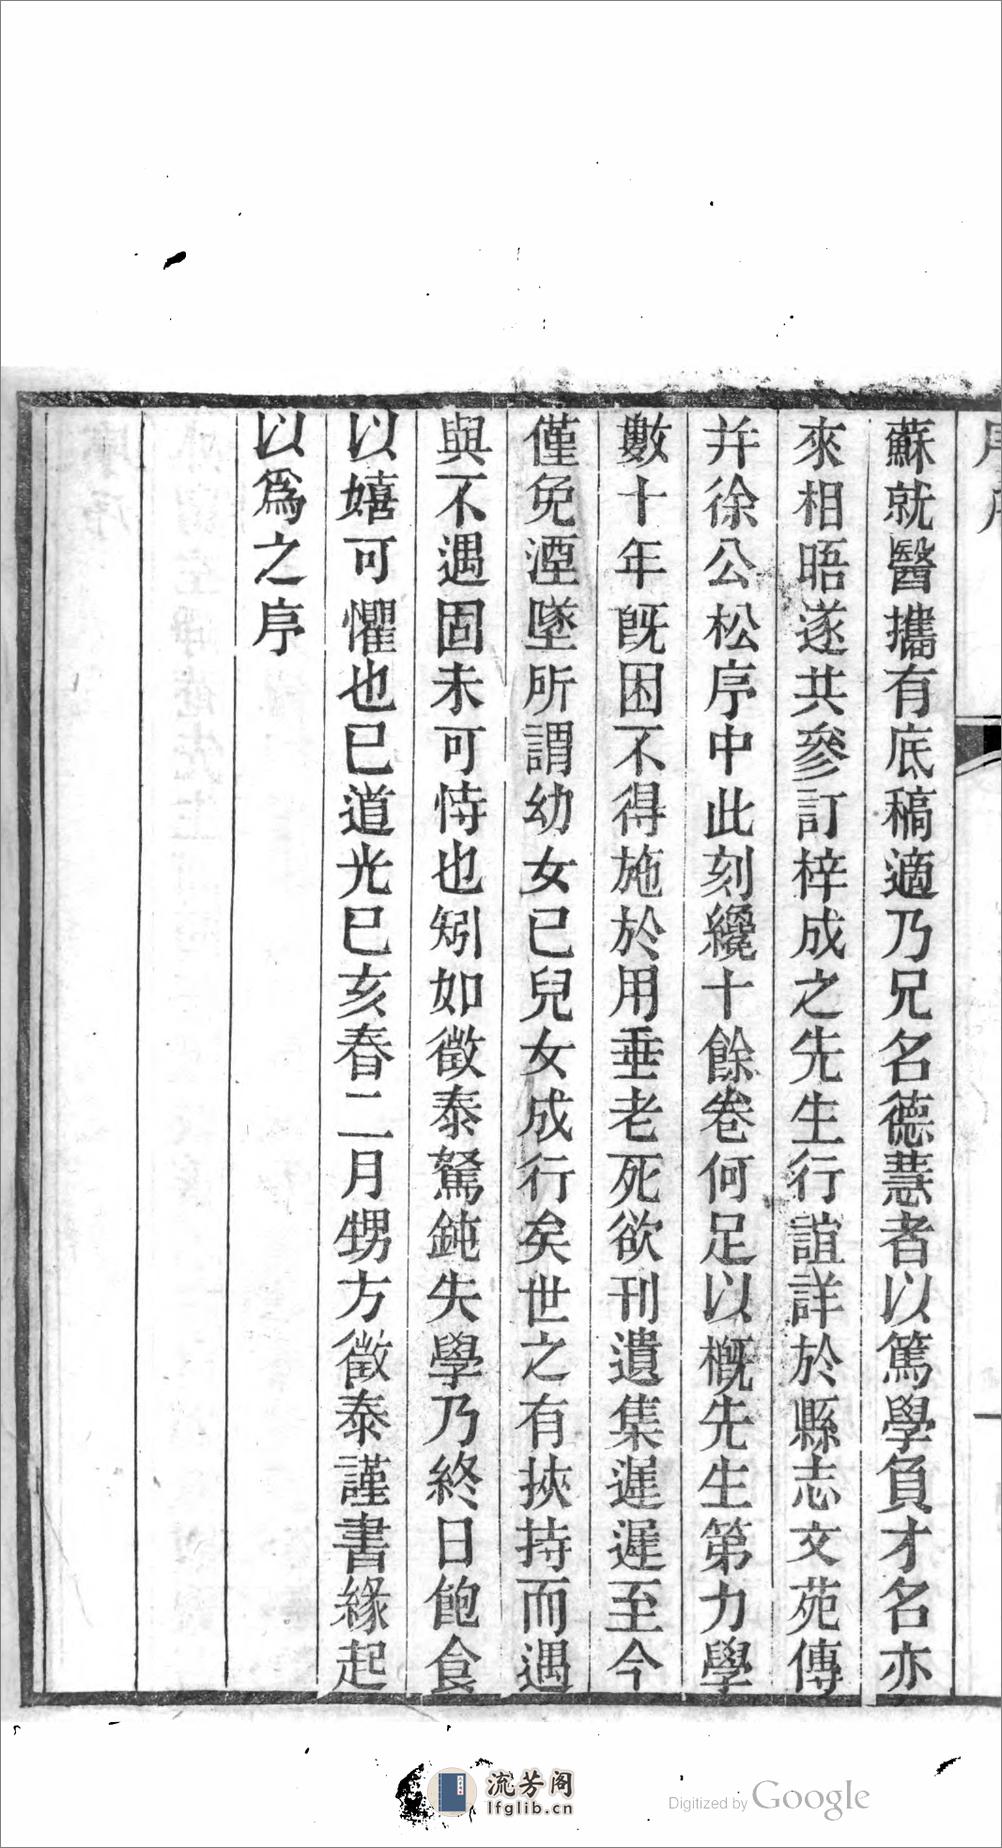 蘇就醫攜有底稿適乃兄名德慧者以篤學負才名亦
來相晤遂共參訂梓成之先生行誼詳於縣志文苑傳
幷徐公松序中此刻纔十餘卷何足以概先生第力學
數十年旣困不得施於用垂老死欲刊遺集遲遲至今
僅免湮墜所謂幼女已兒女成行矣世之有挾持而遇
與不遇固未可恃也矧如徵泰駑鈍失學乃終日飽食
以嬉可懼也已道光已亥春二月甥方徵泰謹書緣起
以爲之序
流芳阁
lfglib.cn
Digitized by Google